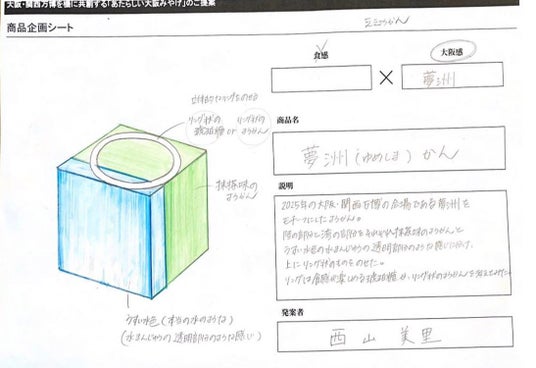 大阪・関西万博を機に共創する「あたらしい大阪みやげ」のご提案
商品企画シート
豆ようかん
食感
×
大阪感
夢洲
商品名
夢洲(ゆめしま)かん
立体的なリングをのせる
リング状の
琥珀糖 or
リング状の
ようかん
抹茶味の
ようかん
うすい水色(本当の水のような)
(水まんじゅうの透明部分のような感じ)
説明
2025年の大阪・関西万博の会場である夢洲を
モチーフにしたようかん。
陸の部分と海の部分をそれぞれ抹茶味のようかんと
うすい水色の水まんじゅうの透明部分のような感じに分け、
上にリング状のものをのせた。
リングは食感が楽しめる琥珀糖か、リング状のようかんを考えてみた
発案者
西山美里